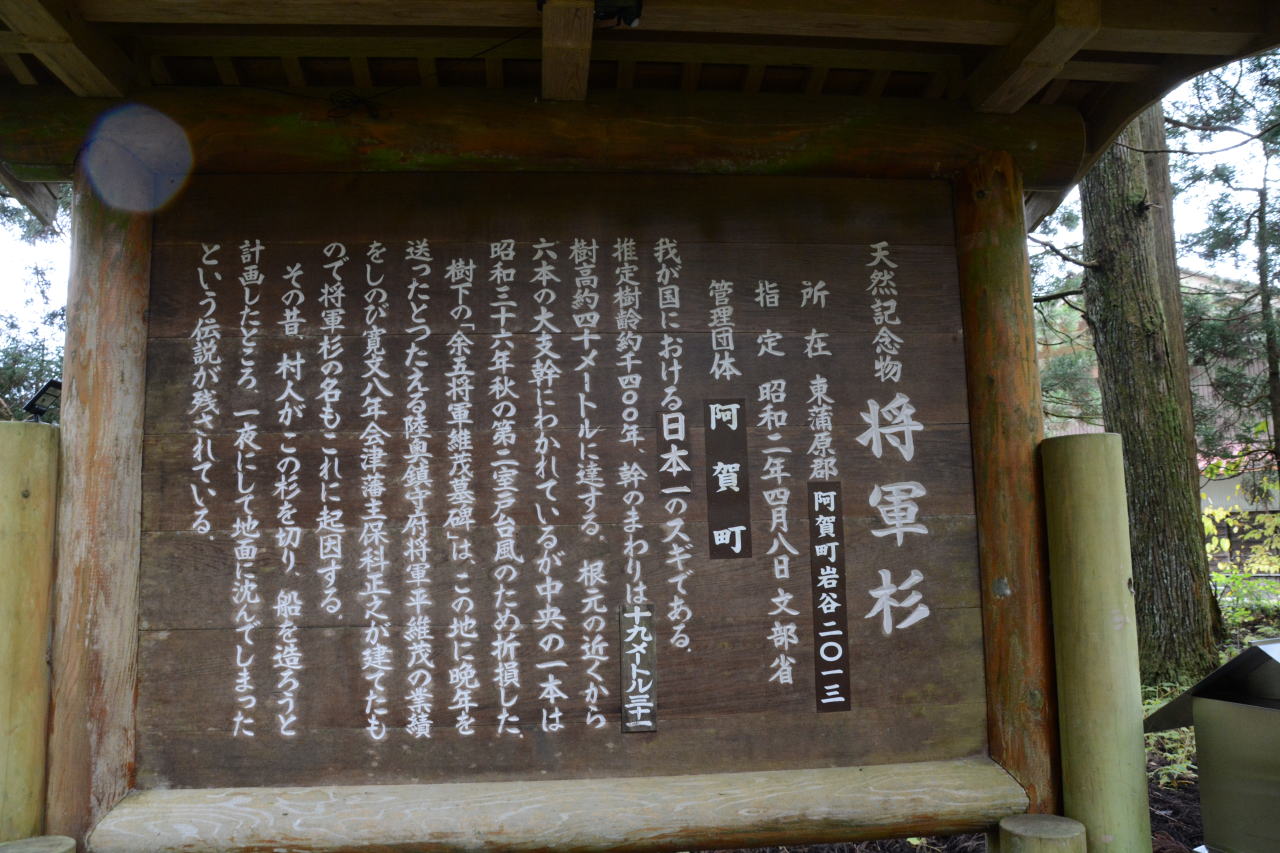 天然記念物 将軍杉
所在 東蒲原郡 阿賀町岩谷二〇一三
指定 昭和二年四月八日文部省
管理団体 阿賀町
我が国における日本一のスギである。
推定樹齢約千四〇〇年、幹のまわりは十九メートル三十一
樹高約四十メートルに達する。根元の近くから
六本の大支幹にわかれているが中央の一本は
昭和三十六年秋の第二室戸台風のため折損した
樹下の「余五将軍維茂墓碑」は、この地に晩年を
送ったとつたえる陸奥鎮守府将軍平維茂の業績
をしのび寛文八年会津藩主保科正之が建てたも
ので将軍杉の名もこれに起因する。
その昔 村人がこの杉を切り、船を造ろうと
計画したところ、一夜にして地面に沈んでしまった
という伝説が残されている。